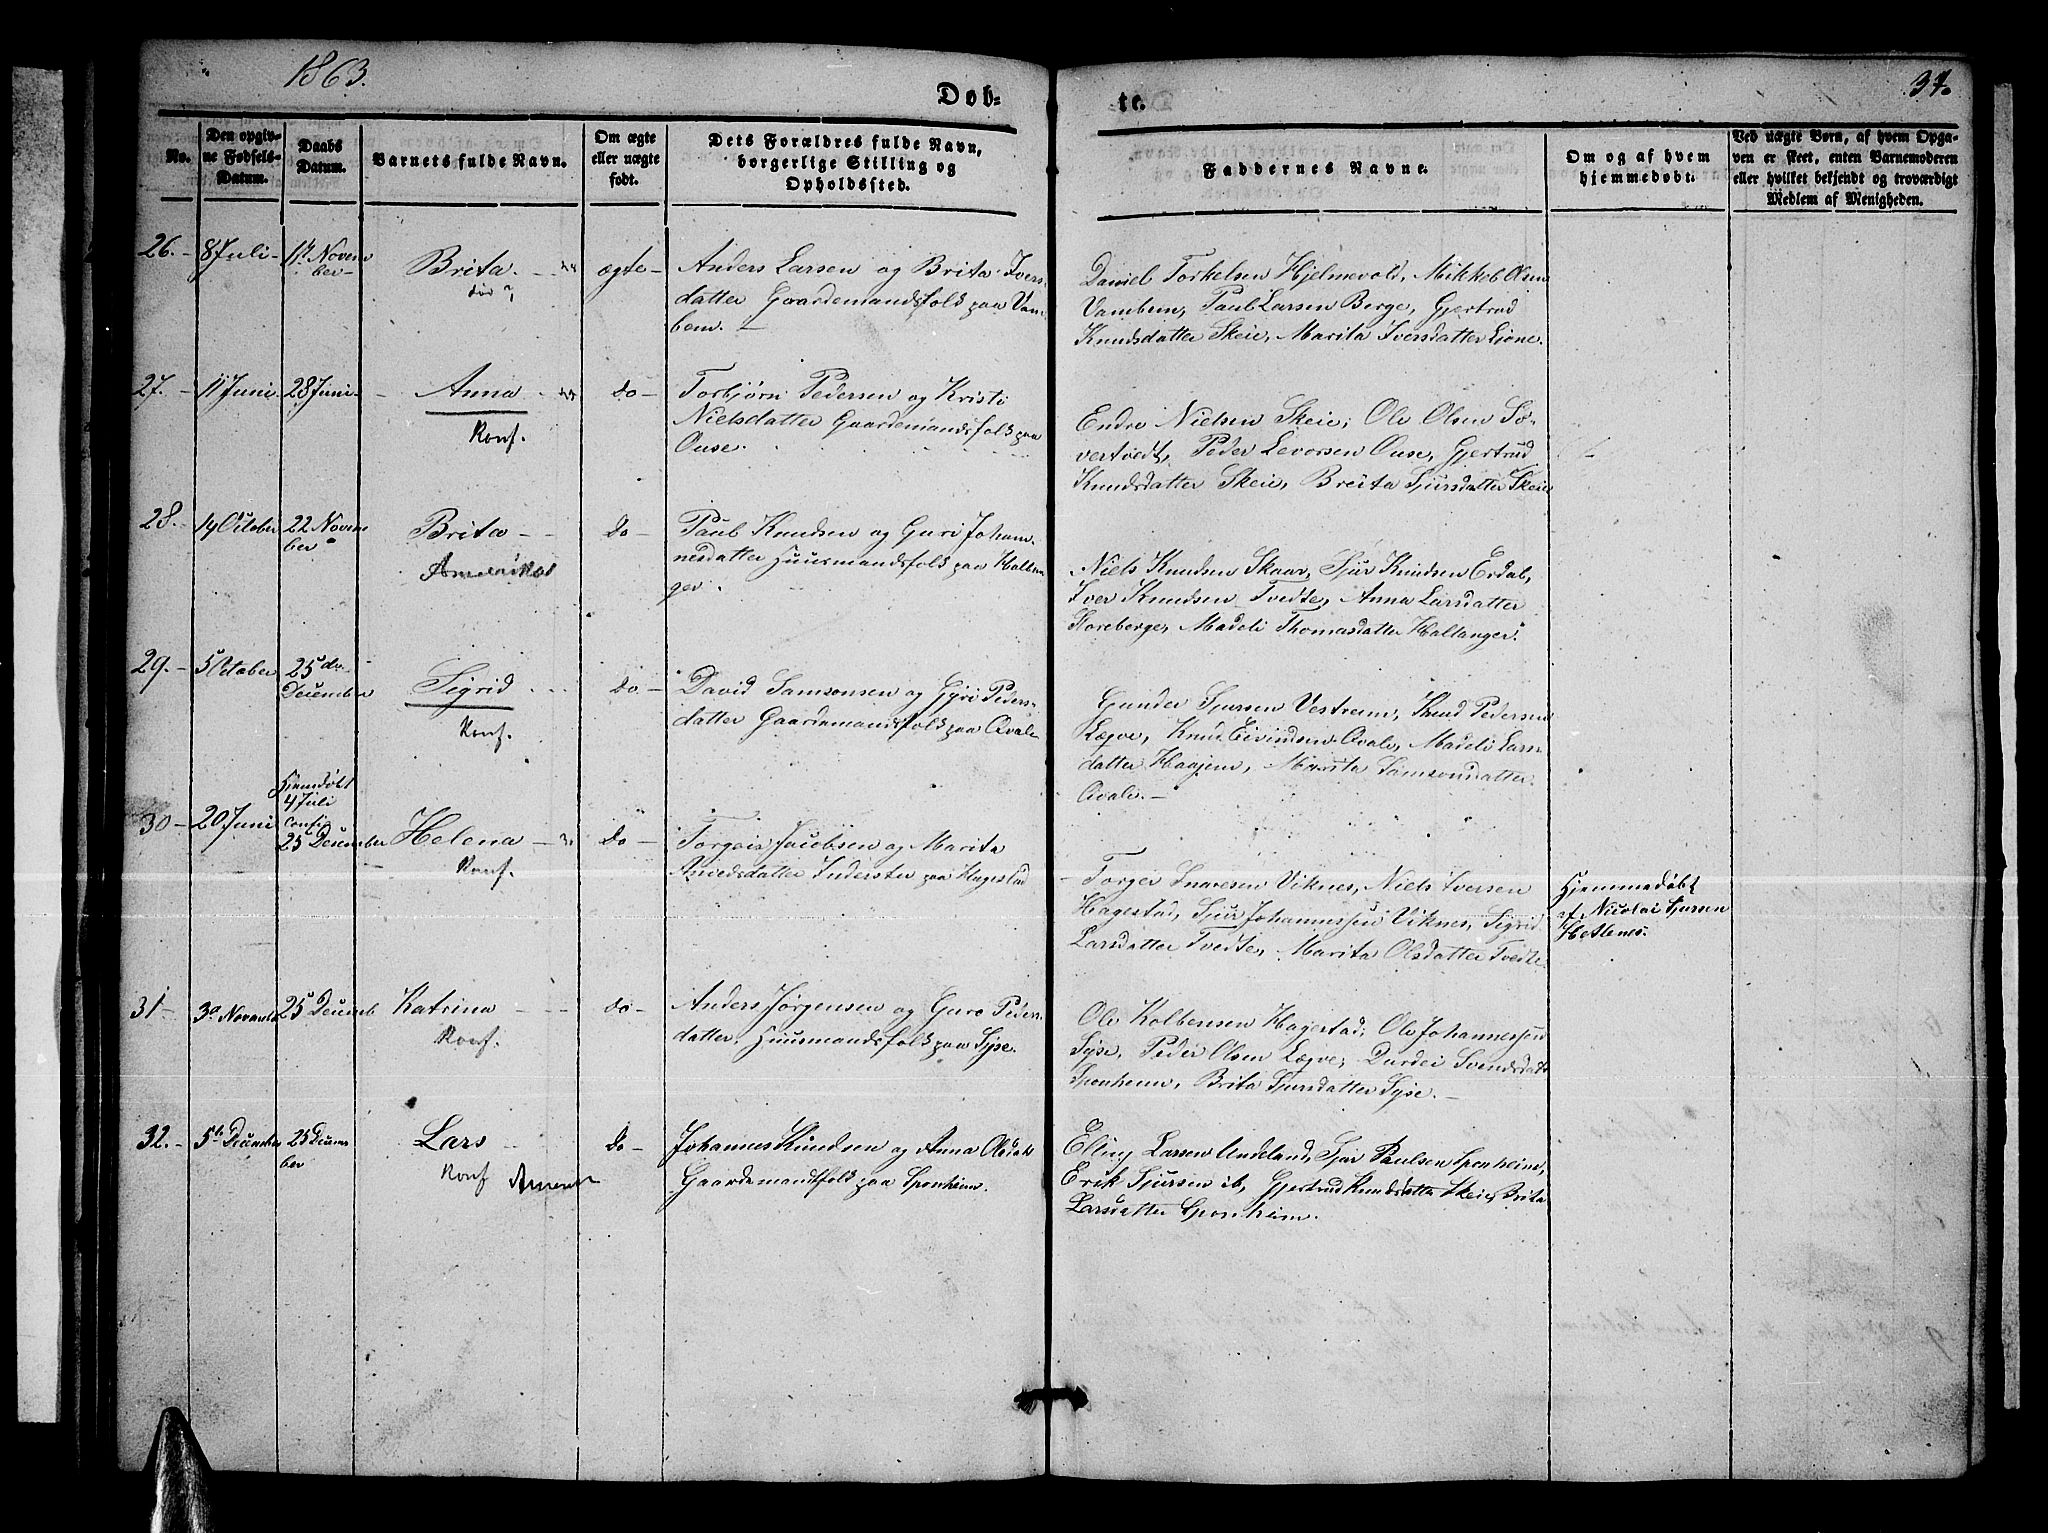 1863.
34.
Døb-
te.
No.
Den opgiv-
ne Fødsels-
Datum.
Daabs
Datum.
Barnets fulde Navn.
Om ægte
eller uægte
født.
Dets Forældres fulde Navn,
borgerlige Stilling og
Opholdssted.
Faddernes Navne.
Om og af hvem
hjemmedøbt.
Ved uægte Børn, af hvem Opga-
ven er skeet, enten Barnemoderen
eller hvilket bekjendt og troværdigt
Medlem af Menigheden.
26. 8 Juli
Novem
ber
Brita.
ægte
Anders Larsen og Brita Ivers-
datter Gaardemandsfolk paa Vam-
bem.
Daniel Torkelsen Hjelmevold, Mikkel Olsen
Vambem, Paul Larsen Berge, Gjertrud
Knudsdatter Skeie, Marita Iversdatter Lione.
27. 11 Juni 28 Juni
Anna
Konf.
do
Torbjørn Pedersen og Kristi
Nielsdatter Gaardemandsfolk paa
Ouse.
Endre Nielsen Skeie, Ole Olsen Sø-
vertvedt, Peder Levorsen Ouse, Gjertrud
Knudsdatter Skeie, Breita Sjursdatter Skeie
28. 14 October
22 Novem
ber
Brita
Amerika
do
Paul Knudsen og Guri Johan-
nesdatter Huusmandsfolk paa Haltan-
ger.
Niels Knudsen Skaar, Sjur Knudsen Erdal,
Iver Knudsen Tvedte, Anna Larsdatter
Floreberge, Madeli Thomasdatter Haltanger.
29. 5 October
25de
December
Sigrid
Konf.
do
David Samsonsen og Gyri Peders-
datter Gaardemandsfolk paa Qvale
Gunder Sjursen Vestrem, Knud Pedersen
Lægve, Knud Eivindsen Qvale, Madeli Lars-
datter Haajem, Marita Samsonsdatter
Qvale.
30 20 Juni
Hjemdøbt
4 Juli
Conf.
25 December
Helena
Konf.
do
Torgeis Jacobsen og Marita
Amedsdatter Inderster paa Hagestad
Torger Snaresen Viknes, Niels Iversen
Hagestad, Sjur Johannessen Viknes, Sigrid
Larsdatter Tvedte, Marita Olsdatter Tvedte
Hjemmedøbt
af Nicolai Sjursen
Hetlenes.
31 30 Novembr 25 Decemb
Katrina
Konf.
do
Anders Jørgensen og Guro Peders-
datter, Huusmandsfolk paa Syse.
Ole Kolbensen Hagestad, Ole Johannessen
Syse, Peder Olsen Lægve, Durdei Svendsdatt
Sponheim, Brita Sjursdatter Syse.
32. 5te December
25 Decem
ber
Lars
Konf Amerik
do
Johannes Knudsen og Anna Olsdatt
Gaardemandsfolk paa Sponheim.
Elling Larsen Undeland, Sjur Paulsen Sponheim,
Erik Sjursen ib, Gjertrud Knudsdatter Skeie, Brita
Larsdatter Sponheim.